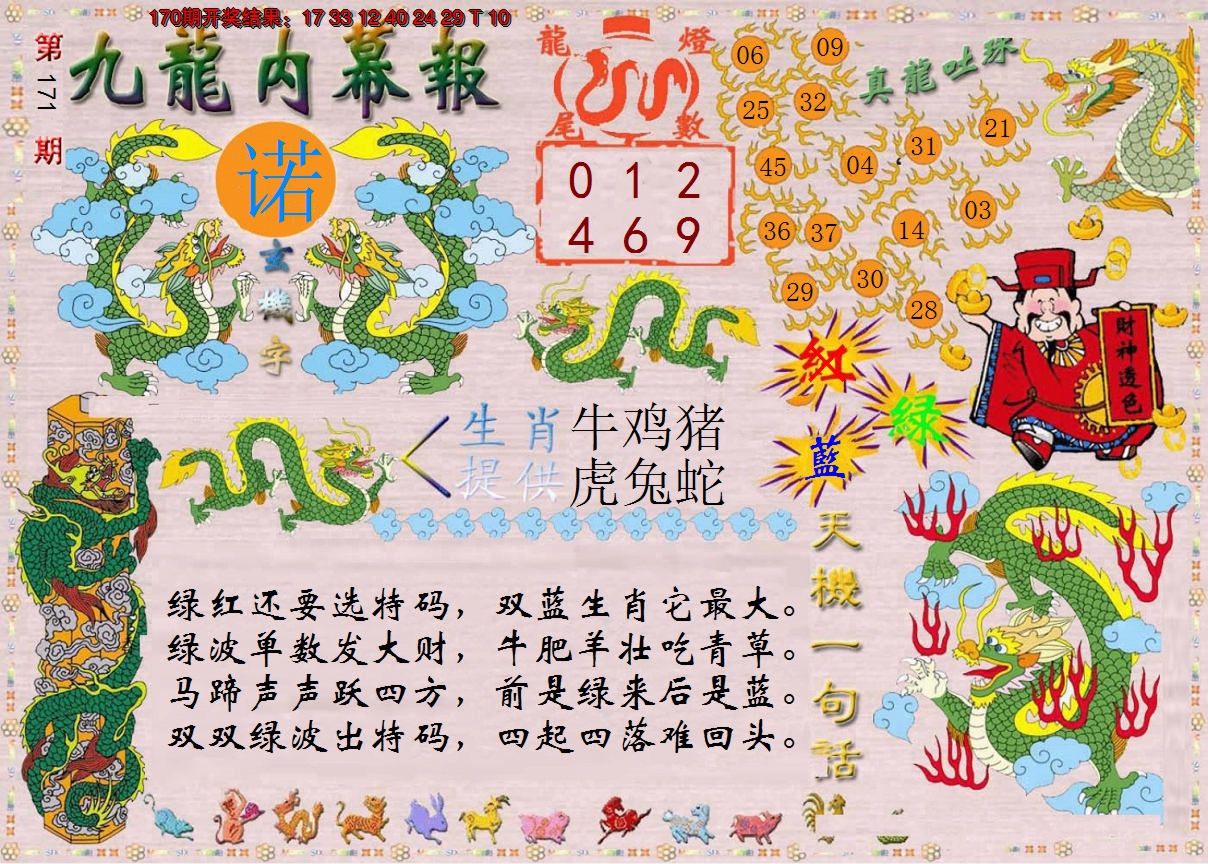 170期开奖结果：17 33 12 40 24 29 T 10
第171期
九龍内幕報
龍燈
尾數
0 1 2
4 6 9
真龍吐珠
06
09
25
32
45
04
31
21
36
37
14
03
29
30
28
诺
玄機字
財神透色
紅
绿
藍
生肖 牛鸡猪
提供 虎兔蛇
天機一句話
绿红还要选特码，双蓝生肖它最大。
绿波单数发大财，牛肥羊壮吃青草。
马蹄声声跃四方，前是绿来后是蓝。
双双绿波出特码，四起四落难回头。